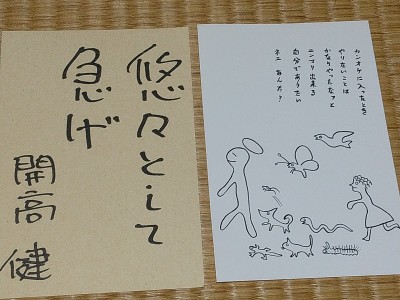 悠々として
急げ
開高
健
カンオケに入ったとき
やりないことは
かなりやったなァと
ニンマリ出来る
自分でありたい
ネエ あんた?